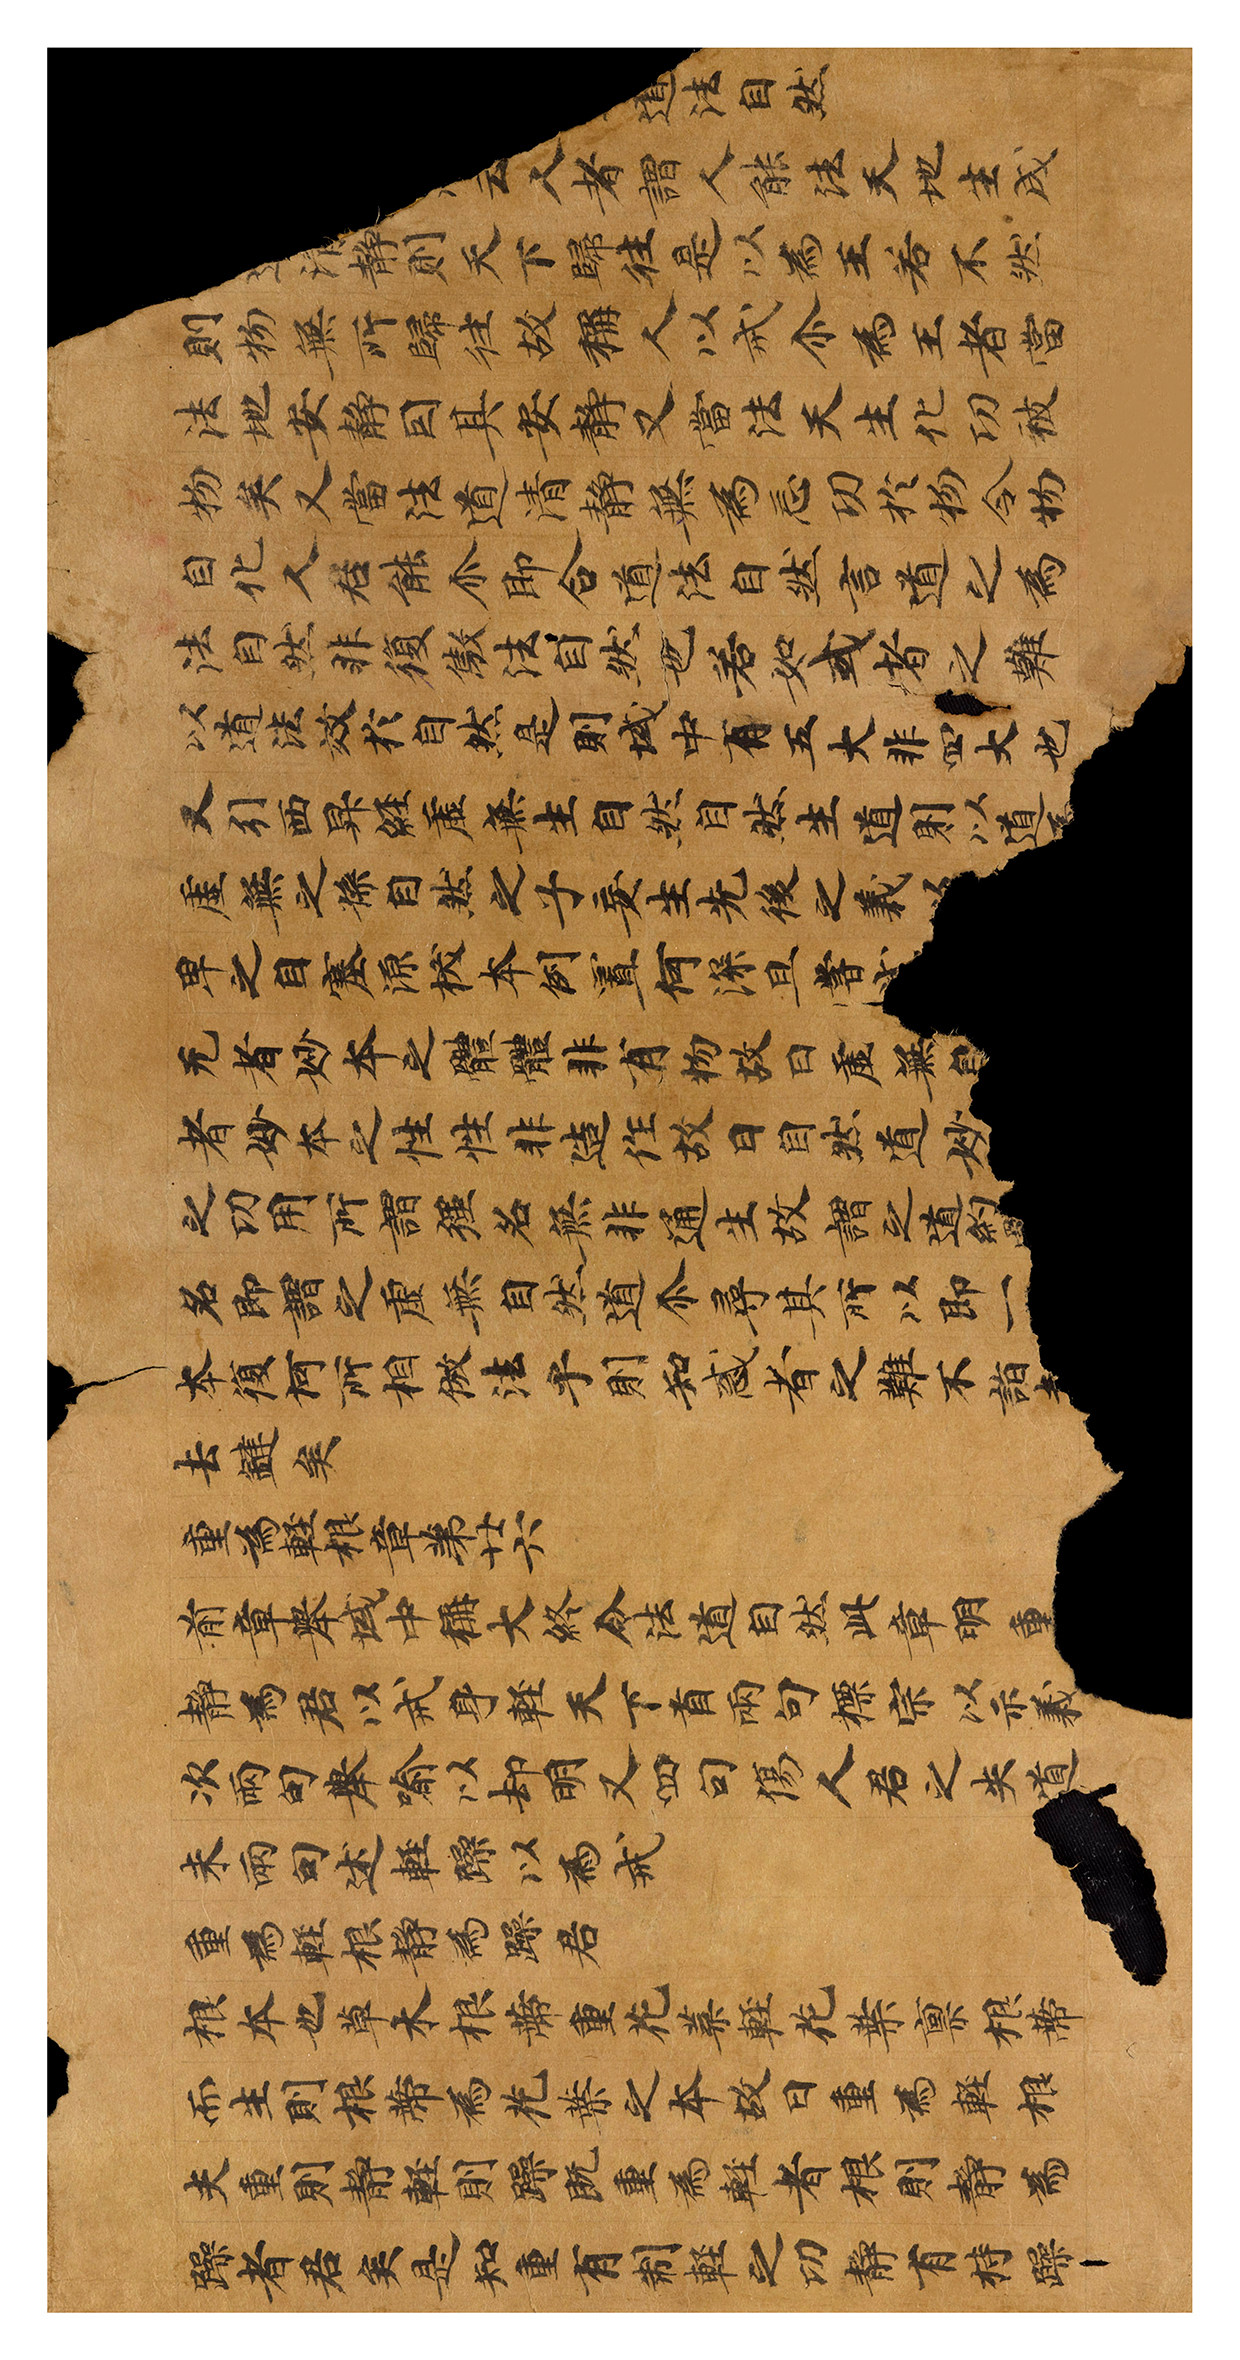 道法自然
云人者謂人能法天地生成
靜則天下歸往是以為王若不然
則物無所歸往故稱人以戒尒為王者當
法地安靜因其安靜又當法天生化功被
物矣又當法道清靜無為忘功於物令物
自化人君能尒即合道法自然言道之為
法自然非復倣法自然也若如或者之難
以道法效於自然是則域中有五大非四大也
又引西昇經虛無生自然自然生道則以道
虛無之孫自然之子妄生先後之義以
卑之目塞源拔本倒置何深且嘗
无者妙本之體體非有物故曰虛無自
者妙本之性性非造作故曰自然道妙
之功用所謂强名無非通生故謂之道約
名即謂之虛無自然道尒尋其所以即一
本復何所相倣法乎則知惑者之難不詣
玄鍵矣
重為輕根章第廿六
前章舉域中稱大終令法道自然此章明重
靜為君以戒身輕天下首兩句標宗以示義
次兩句舉喻以却明又四句傷人君之失道
末兩句述輕躁以為戒
重為輕根靜為躁君
根本也草木根蔕重花葉輕花葉稟根蔕
而生則根蔕為花葉之本故曰重為輕根
夫重則靜輕則躁既重為輕者根則靜為
躁者君矣是知重有制輕之功靜有持躁